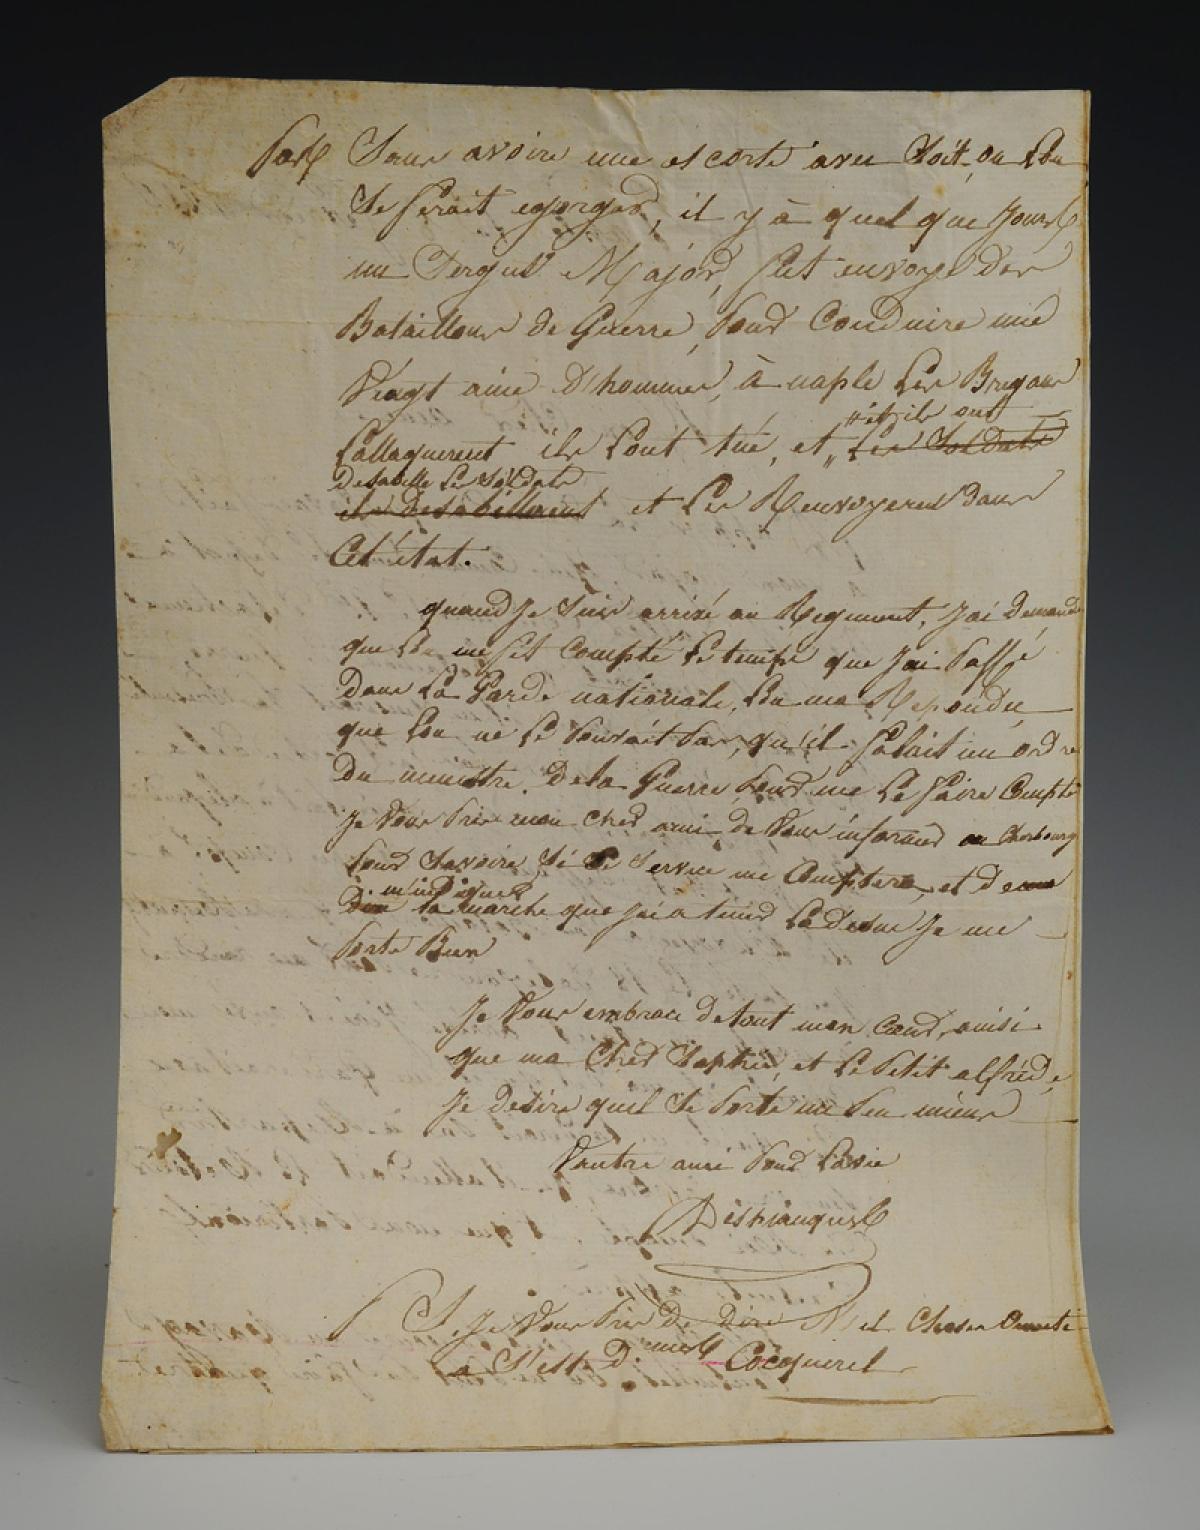 pas Sans avoire une escorte avec Soit, ou Lon
Se ferait egorger, il y à quel que jours
un Sergent Major, fut envoyé des
Bataillons de Guerre, pour Conduire une
Vingt aine d'hommes, à naple Les Brigans
Lattaquerent ils Lont tué, et Les Soldats
"et ils ont
desabille Les Soldats
ils desabillerent et Les Renvoyerent dans
Cet état.
quand Je Suis arrivé au Regiment, J'ai demandé
que Lon me fit Compté Le temps que J'ai passé
Dans La Garde nationale, Lon ma Repondu
que Lon ne Le pouvait pas, qu'il falait un ordre
du ministre de la Guerre pour me Le faire Compté
Je vous prie mon Cher ami de vous informer au Cherbourg
pour Savoire Si Ce Service me Comptera, et de me
m'indiquer
dire la marche que J'ai a tenir La desus Je me
porte Bien
Je vous embrace de tout mon Coeur, ainsi
que ma Cher Sophie, et Le petit alfréd,
Je desire quil Se porte un peu mieux
Vautre ami pour Lavie
P S. Je vous prie de dire
a Mr Cocquerel